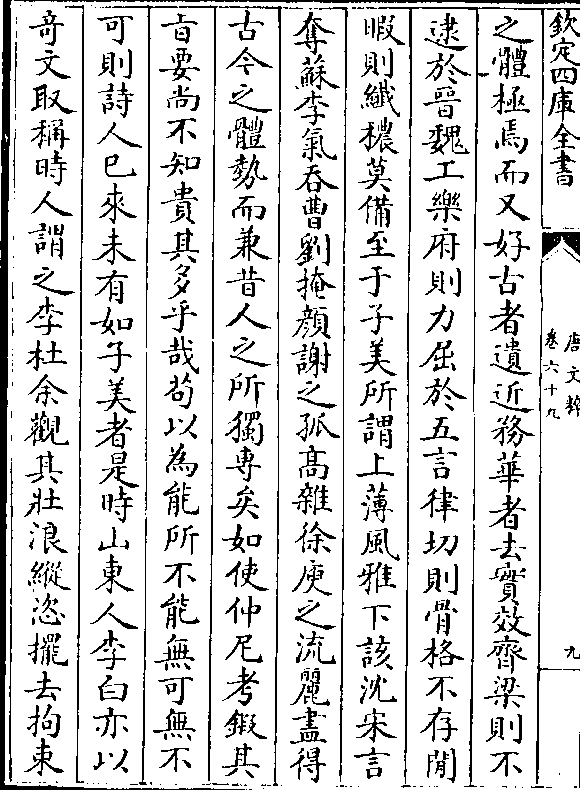 欽定四庫全書
唐文粹
卷六十九
九
之體極焉而又好古者遺近務華者去實效齊梁則不
逮於晉魏工樂府則力屈於五言律切則骨格不存閒
暇則纖穠莫備至于子美所謂上薄風雅下該沈宋言
奪蘇李氣吞曹劉掩顔謝之孤高雜徐庾之流麗盡得
古今之體勢而兼昔人之所獨專矣如使仲尼考鍜其
旨要尚不知貴其多乎哉茍以為能所不能無可無不
可則詩人已來未有如子美者是時山東人李白亦以
竒文取稱時人謂之李杜余觀其壯浪縱恣擺去拘束